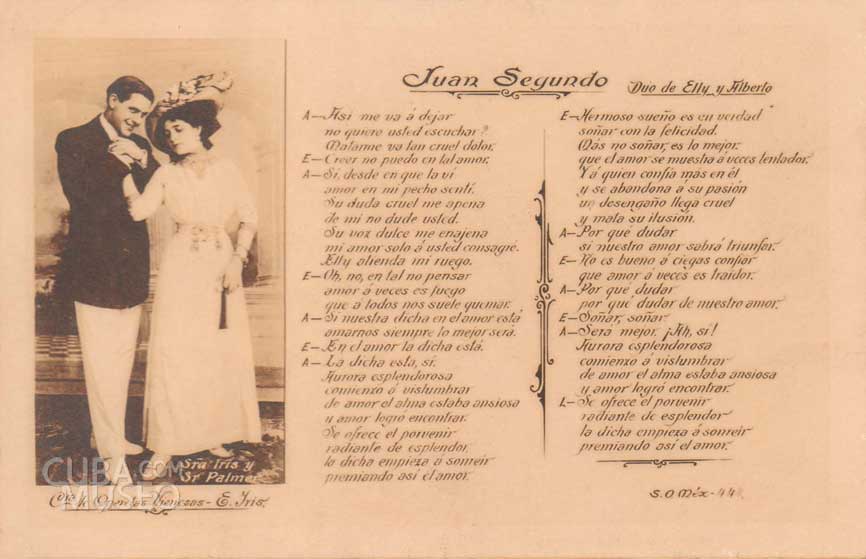 Juan Segundo
Duo de Elly y Alberto
A—Asi me va á dejar
no quiere usted escuchar?
Matarme va tan cruel dolor.
E—Creer no puedo en tal amor.
A—Si, desde en que la ví
amor en mi pecho sentí.
Su duda cruel me apena
de mi no dude usted.
Su voz dulce me enajena
mi amor solo á usted consagré.
Elly atienda mi ruego.
E—Oh, no, en tal no pensar
amor á veces es fuego
que á todos nos suele quemar.
A—Si nuestra dicha en el amor está
amarnos siempre lo mejor será.
E—En el amor la dicha está.
A—La dicha está, sí.
Aurora esplendorosa
comienzo á vislumbrar
de amor el alma estaba ansiosa
y amor logró encontrar.
Se ofrece el porvenir
radiante de esplendor,
la dicha empieza á sonreir
premiando asi el amor.
E—Hermoso sueño es en verdad
soñar con la felicidad.
Más no soñar, es lo mejor.
que el amor se muestra á veces tentador.
Y á quien confía más en él
y se abandona á su pasión
un desengaño llega cruel
y mata su ilusión.
A—Por qué dudar
si nuestro amor sabrá triunfar.
E—No es bueno á ciegas confiar
que amor á veces es traidor.
A—Por qué dudar
por qué dudar de nuestro amor.
E—Soñar, soñar
A—Será mejor. ¡Ah, sí!
Aurora esplendorosa
comienzo á vislumbrar
de amor el alma estaba ansiosa
y amor logró encontrar.
L—Se ofrece el porvenir
radiante de esplendor
la dicha empieza á sonreir
premiando asi el amor.
Sra Iris y
Sr Palmer
CUBA.com
MUSEO
Cía de Operetas Vienesas - E. Iris.
S.O Méx-44